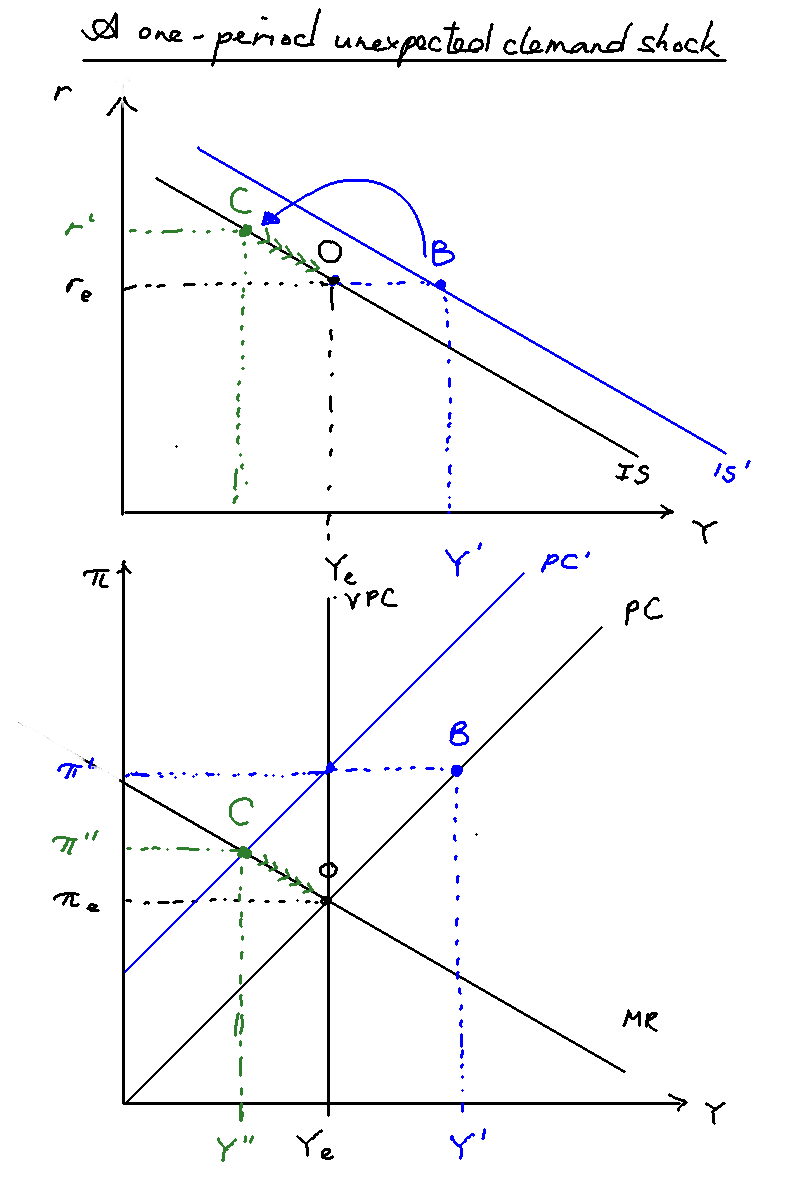 A one-period unexpected demand shock
r
C
r'
O
B
re
IS
IS'
Y
Ye
Y'
π
PC'
VPC
PC
B
π'
C
π''
O
πe
MR
Y
Y''
Ye
Y'